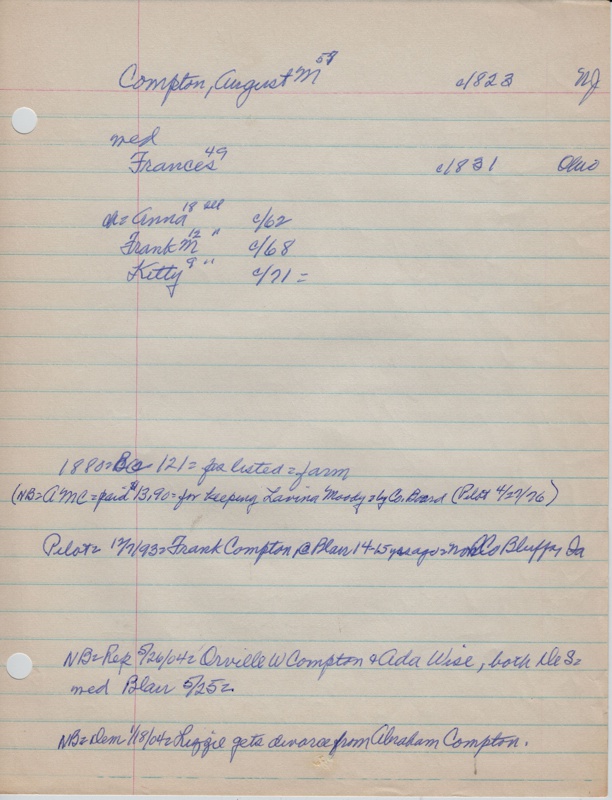 Compton, August M 57 c/1823 NJ
med
Frances 49 c/1831 Ohio
ch= Anna 18 Ill c/62
Frank M 12 " c/68
Kitty 9 " c/71 =
1880= 121= fea listed = farm
(NB= AMC= paid $13.90= for keeping Lavina Moody= by Co. Board (Pilot 4/27/76)
Pilot= 12/7/93= Frank Compton, @ Blair 14-15 yrs ago= now Co Bluffs, Ia
NB= Rep 5/26/04= Orville W Compton & Ada Wise, both DeS=
med Blair 5/25=
NB= Dem 1/18/04= Lizzie gets divorce from Abraham Compton.